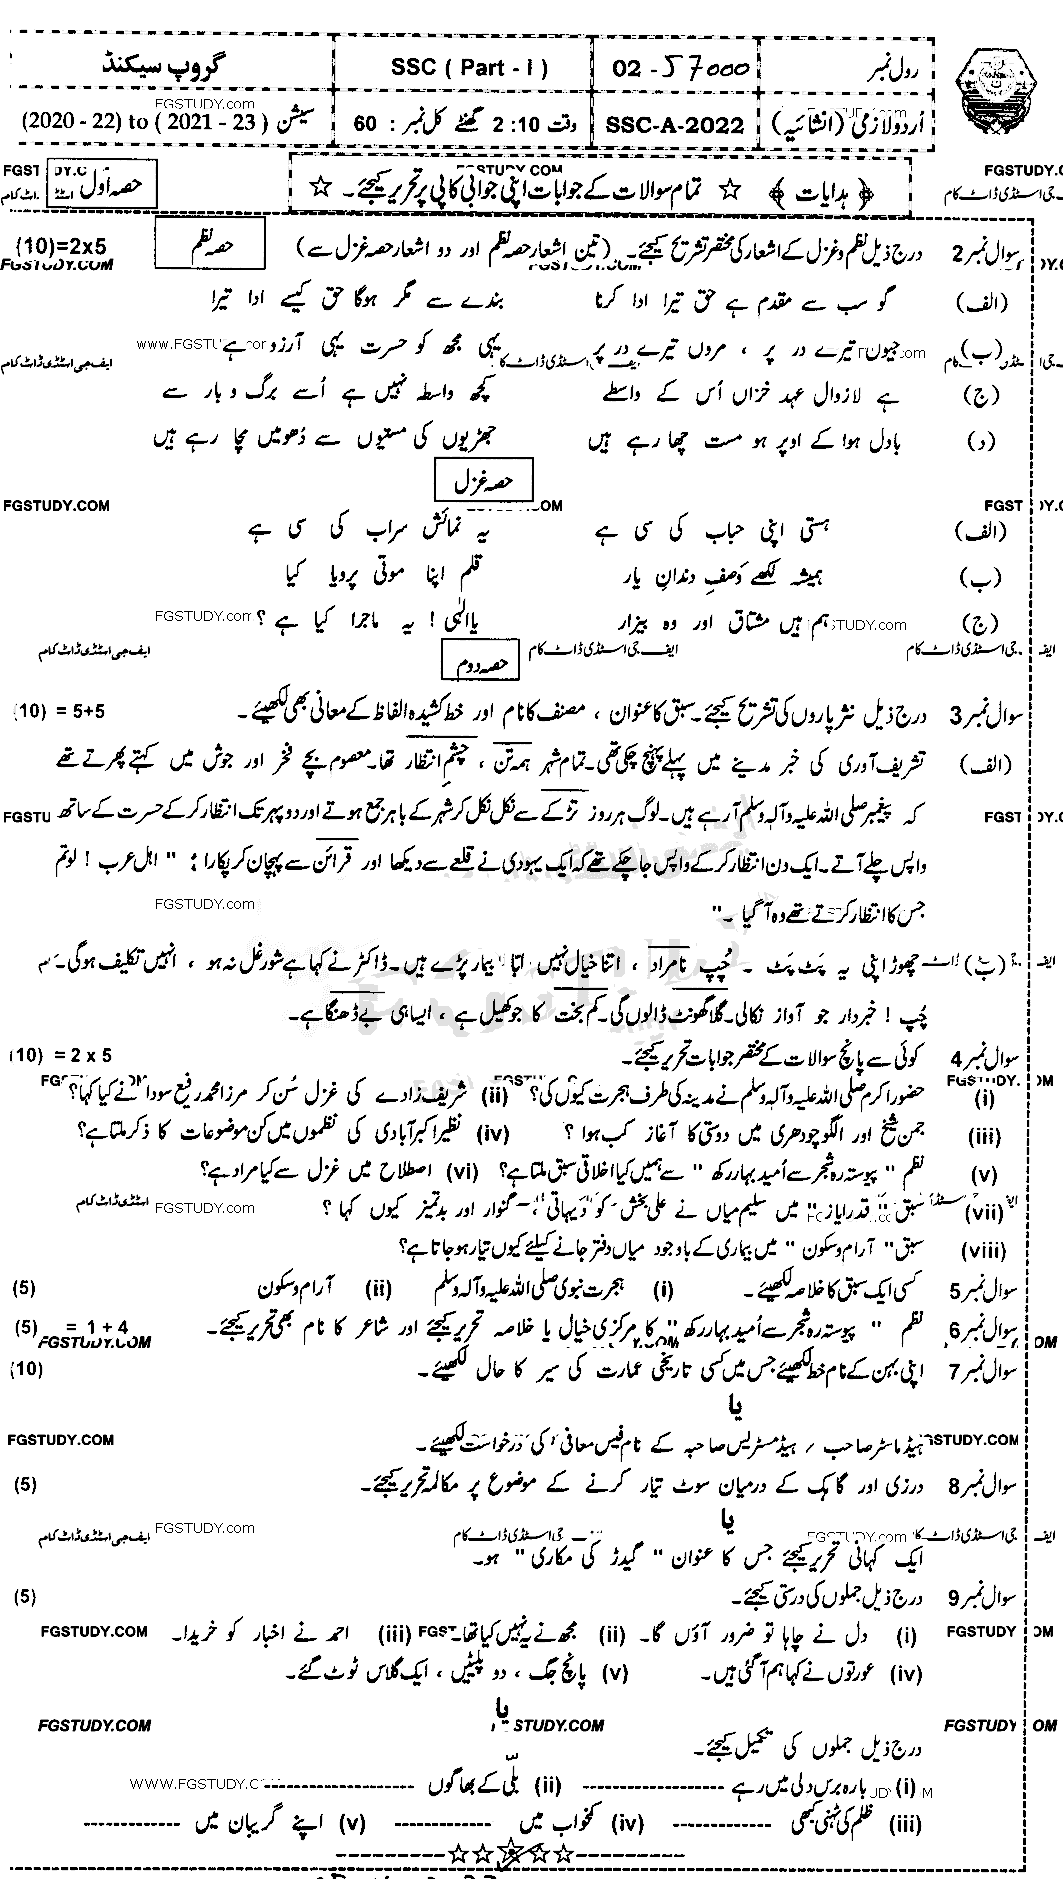 رول نمبر 02 - 57000 SSC ( Part - I ) گروپ سیکنڈ
FGSTUDY.com
اُردو لازمی (انشائیہ) SSC-A-2022 وقت 2:10 گھنٹے کل نمبر : 60 سیشن (2020 - 22) to ( 2021 - 23 )
﴿ ہدایات ﴾ ☆ تمام سوالات کے جوابات اپنی جوابی کاپی پر تحریر کیجئے۔ ☆ حصہ اول
سوال نمبر 2 درج ذیل نظم و غزل کے اشعار کی مختصر تشریح کیجئے۔ (تین اشعار حصہ نظم اور دو اشعار حصہ غزل سے) حصہ نظم (10)=2x5
(الف) گو سب سے مقدم ہے حق تیرا ادا کرنا بندے سے مگر ہوگا حق کیسے ادا تیرا
(ب) جیوں تیرے در پر ، مروں تیرے در پر یہی مجھ کو حسرت یہی آرزو ہے
(ج) ہے لازوال عہد خزاں اُس کے واسطے کچھ واسطہ نہیں ہے اُسے برگ و بار سے
(د) بادل ہوا کے اوپر ہو مست چھا رہے ہیں جھڑیوں کی مستیوں سے دُھومیں مچا رہے ہیں
حصہ غزل
FGSTUDY.COM
(الف) ہستی اپنی حباب کی سی ہے یہ نمائش سراب کی سی ہے
(ب) ہمیشہ لکھے وَصفِ دندانِ یار قلم اپنا موتی پرویا کیا
(ج) ہم ہیں مشتاق اور وہ بیزار یاالٰہی ! یہ ماجرا کیا ہے ؟ FGSTUDY.com
ایف جی اسٹڈی ڈاٹ کام
حصہ دوم
سوال نمبر 3 درج ذیل نثر پاروں کی تشریح کیجئے۔ سبق کا عنوان ، مصنف کا نام اور خط کشیدہ الفاظ کے معانی بھی لکھیئے۔ (10) = 5+5
(الف) تشریف آوری کی خبر مدینے میں پہلے پہنچ چکی تھی۔ تمام شہر ہمہ تن ، چشمِ انتظار تھا۔ معصوم بچے فخر اور جوش میں کہتے پھرتے تھے
کہ پیغمبر صلی اللہ علیہ وآلہ وسلم آ رہے ہیں۔ لوگ ہر روز تڑکے سے نکل نکل کر شہر کے باہر جمع ہوتے اور دوپہر تک انتظار کر کے حسرت کے ساتھ
واپس چلے آتے۔ ایک دن انتظار کر کے واپس جا چکے تھے کہ ایک یہودی نے قلعے سے دیکھا اور قرائن سے پہچان کر پکارا : " اہل عرب ! لو تم
جس کا انتظار کرتے تھے وہ آ گیا ۔ "
FGSTUDY.com
(ب) چھوڑ اپنی یہ پَٹ پَٹ ۔ چُپ نامراد ، اتنا خیال نہیں ابا بیمار پڑے ہیں۔ ڈاکٹر نے کہا ہے شور غل نہ ہو ، انہیں تکلیف ہوگی۔
چُپ ! خبردار جو آواز نکالی۔ گلا گھونٹ ڈالوں گی۔ کم بخت کا جو کھیل ہے ، ایسا ہی بے ڈھنگا ہے۔
سوال نمبر 4 کوئی سے پانچ سوالات کے مختصر جوابات تحریر کیجئے۔ (10) = 2 x 5
(i) حضور اکرم صلی اللہ علیہ وآلہ وسلم نے مدینہ کی طرف ہجرت کیوں کی؟ (ii) شریف زادے کی غزل سُن کر مرزا محمد رفیع سودا نے کیا کہا؟
(iii) جمن شیخ اور الگو چودھری میں دوستی کا آغاز کب ہوا ؟ (iv) نظیر اکبر آبادی کی نظموں میں کن موضوعات کا ذکر ملتا ہے؟
(v) نظم " پیوستہ رہ شجر سے اُمید بہار رکھ " سے ہمیں کیا اخلاقی سبق ملتا ہے؟ (vi) اصطلاح میں غزل سے کیا مراد ہے؟
(vii) سبق " قدرِ ایاز " میں سلیم میاں نے علی بخش کو دیہاتی ، گنوار اور بدتمیز کیوں کہا ؟ FGSTUDY.com
(viii) سبق " آرام و سکون " میں بیماری کے باوجود میاں دفتر جانے کیلئے کیوں تیار ہو جاتا ہے؟
سوال نمبر 5 کسی ایک سبق کا خلاصہ لکھیئے۔ (i) ہجرت نبوی صلی اللہ علیہ وآلہ وسلم (ii) آرام و سکون (5)
سوال نمبر 6 نظم " پیوستہ رہ شجر سے اُمید بہار رکھ " کا مرکزی خیال یا خلاصہ تحریر کیجئے اور شاعر کا نام بھی تحریر کیجئے۔ (5) = 1 + 4
FGSTUDY.COM
سوال نمبر 7 اپنی بہن کے نام خط لکھیئے جس میں کسی تاریخی عمارت کی سیر کا حال لکھیئے۔ (10)
یا
ہیڈ ماسٹر صاحب / ہیڈ مسٹریس صاحبہ کے نام فیس معافی کی درخواست لکھیئے۔ FGSTUDY.COM
سوال نمبر 8 درزی اور گاہک کے درمیان سوٹ تیار کرنے کے موضوع پر مکالمہ تحریر کیجئے۔ (5)
یا
FGSTUDY.com ایف جی اسٹڈی ڈاٹ کام
ایک کہانی تحریر کیجئے جس کا عنوان " گیدڑ کی مکاری " ہو۔
سوال نمبر 9 درج ذیل جملوں کی درستی کیجئے۔ (5)
(i) دل نے چاہا تو ضرور آؤں گا۔ (ii) مجھ نے یہ نہیں کیا تھا۔ (iii) احمد نے اخبار کو خریدا۔ FGSTUDY.COM
(iv) عورتوں نے کہا ہم آ گئی ہیں۔ (v) پانچ جگ ، دو پلیٹیں ، ایک گلاس ٹوٹ گئے۔
یا
FGSTUDY.COM
درج ذیل جملوں کی تکمیل کیجئے۔
(i) بارہ برس دلی میں رہے ---------------- (ii) بلّی کے بھاگوں ----------------
(iii) ظلم کی ٹہنی کبھی ------------ (iv) کمخواب میں ------------ (v) اپنے گریبان میں ------------
----------☆☆☆☆☆----------